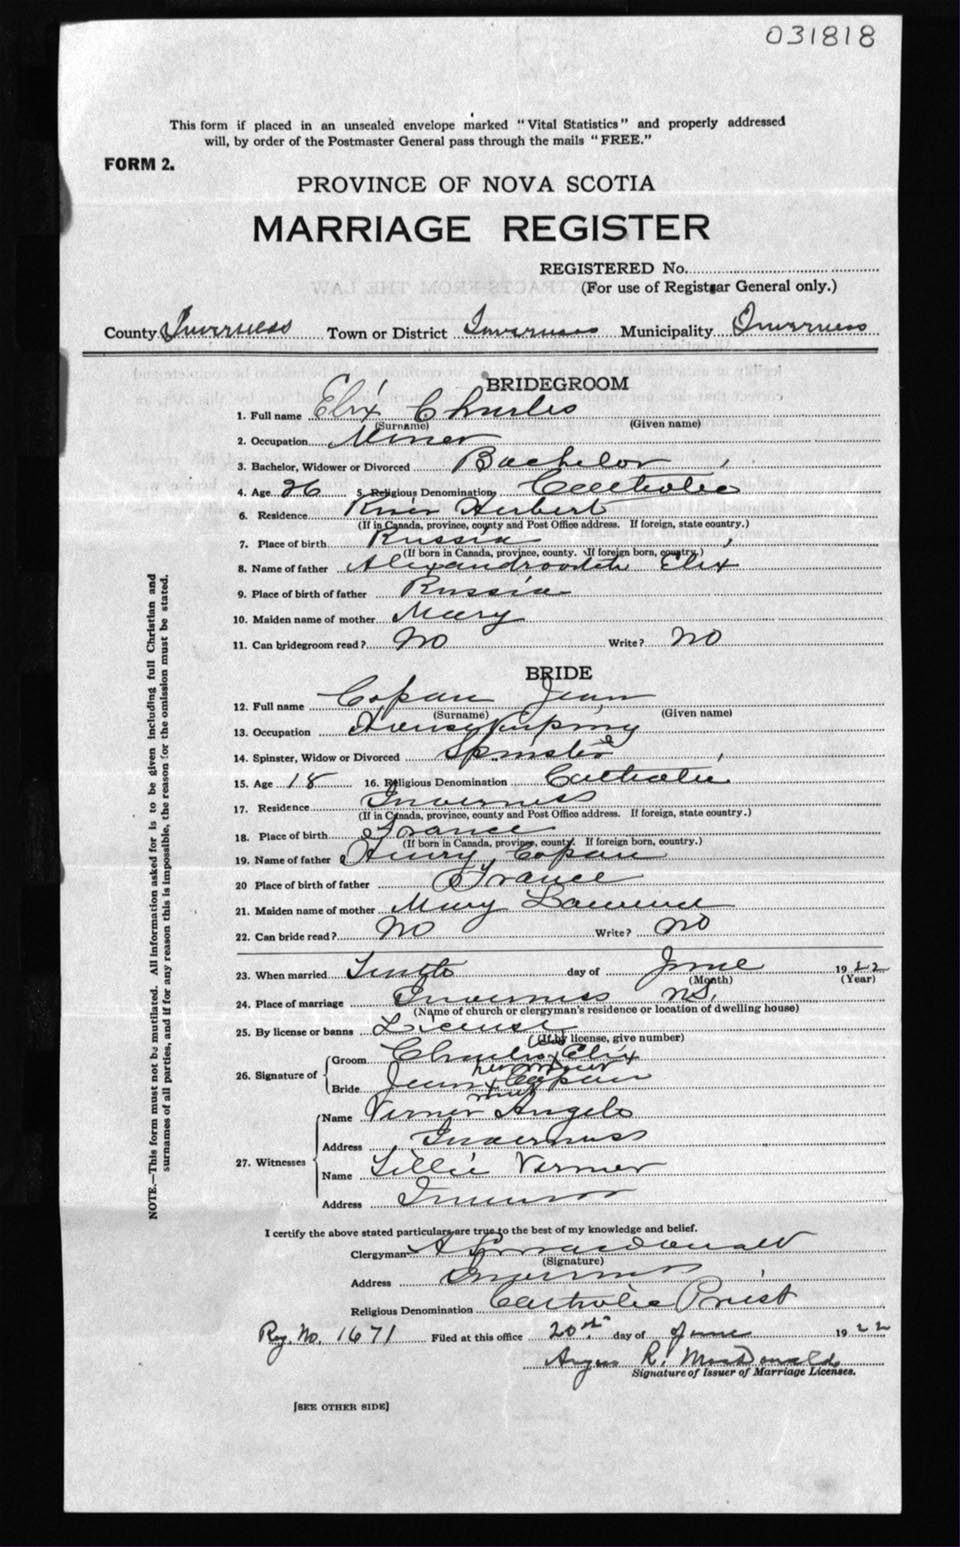 031818
This form if placed in an unsealed envelope marked "Vital Statistics" and properly addressed
will, by order of the Postmaster General pass through the mails "FREE."
FORM 2.
PROVINCE OF NOVA SCOTIA
MARRIAGE REGISTER
REGISTERED No.
(For use of Registrar General only.)
County Inverness Town or District Inverness Municipality Inverness
BRIDEGROOM
1. Full name Elix Charles
(Surname) (Given name)
2. Occupation Miner
3. Bachelor, Widower or Divorced Bachelor
4. Age 26 5. Religious Denomination Catholic
6. Residence River Herbert
(If in Canada, province, county and Post Office address. If foreign, state country.)
7. Place of birth Russia
(If born in Canada, province, county. If foreign born, country.)
8. Name of father Elix
9. Place of birth of father Russia
10. Maiden name of mother Mary
11. Can bridegroom read? No Write? No
BRIDE
12. Full name Copan Jean
(Surname) (Given name)
13. Occupation Housekeeping
14. Spinster, Widow or Divorced Spinster
15. Age 18 16. Religious Denomination Catholic
17. Residence Inverness
(If in Canada, province, county and Post Office address. If foreign, state country.)
18. Place of birth France
(If born in Canada, province, county. If foreign born, country.)
19. Name of father Henry Copan
20 Place of birth of father France
21. Maiden name of mother Mary
22. Can bride read? No Write? No
23. When married Tenth day of June 1922
(Month) (Year)
24. Place of marriage Inverness N.S.
(Name of church or clergyman's residence or location of dwelling house)
25. By license or banns License
(If by license, give number)
26. Signature of Groom Charles x Elix
her mark
Bride Jean x Copan
mark
27. Witnesses Name Verner Angelo
Address Inverness
Name Lillie Verner
Address Inverness
I certify the above stated particulars are true to the best of my knowledge and belief.
Clergyman MacDonald
(Signature)
Address Inverness
Religious Denomination Catholic Priest
Reg. No. 1671 Filed at this office 20th day of June 1922
Angus R. MacDonald
Signature of Issuer of Marriage Licenses.
[SEE OTHER SIDE]
NOTE.—This form must not be mutilated. All information asked for is to be given including full Christian and
surnames of all parties, and if for any reason this is impossible, the reason for the omission must be stated.